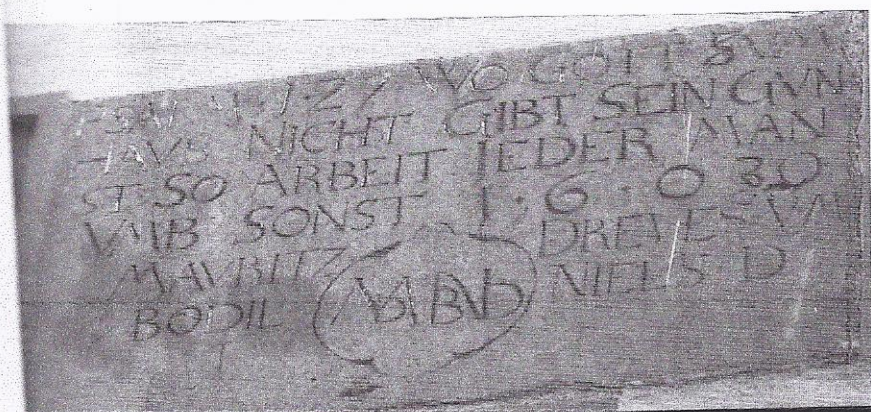 PSALM 1.2.7 WO GOTT ZVM
HAVS NICHT GIBT SEIN GVN
ST SO ARBEIT IEDER MAN
VMB SONST 1·6·0
MAVRITZ DREVES
BODIL MD BND NIELS D